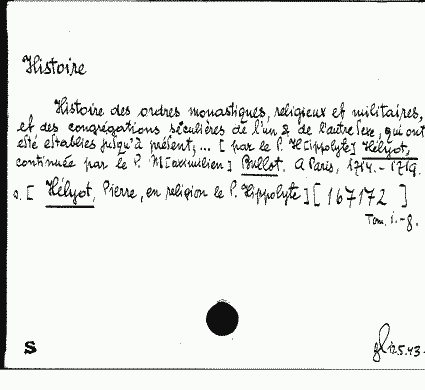 Histoire
Histoire des ordres monastiques, religieux et militaires,
et des congrégations séculières de l'un & de l'autre sexe, qui ont
esté establies jusqu'à présent,... [par le P. H[ippolyte] Hélyot,
continuée par le P. M[aximilien] Bullot. A Paris, 1714.-1719.
s. [Hélyot, Pierre, en religion le P. Hippolyte] [167172]
Tom. 1.-8.
S
12.5.43.